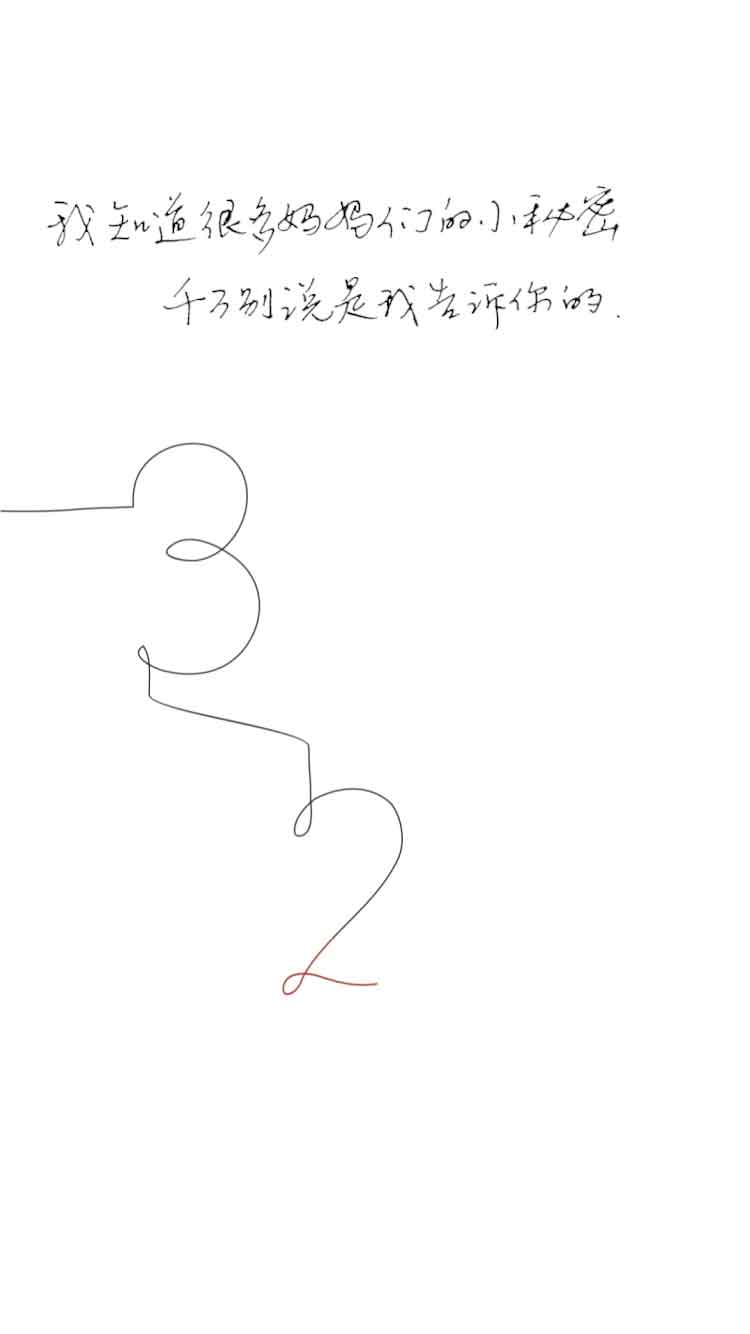 我知道很多妈妈们的小秘密
千万别说是我告诉你的.
3
2